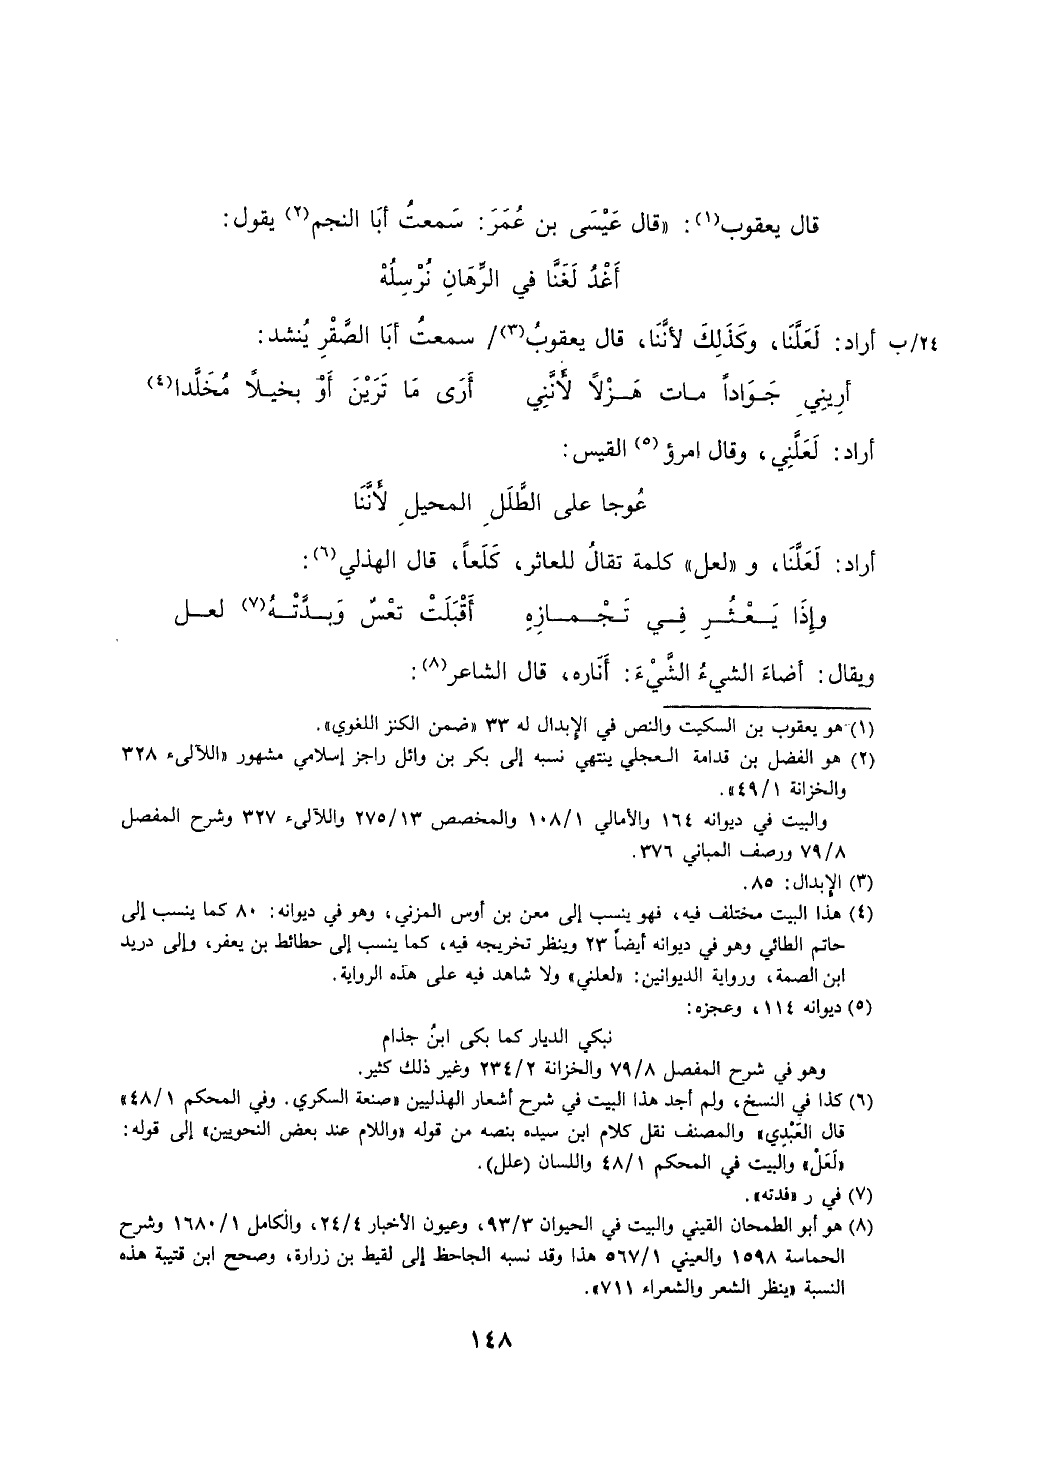 قال يعقوب(١): «قال عَيْسَى بن عُمَرَ: سَمعتُ أبَا النجم(٢) يقول:
أَغْدُ لَغَنَّا في الرِّهَانِ نُرْسِلُهْ
٢٤/ب أراد: لَعَلَّنَا، وكَذَلِكَ لأنَّنَا، قال يعقوبُ(٣)/ سمعتُ أبَا الصَّقْرِ يُنشد:
أرِينِي جَوَاداً مات هَزْلاً لأَنَّنِي أَرَى مَا تَرَيْنَ أوْ بخيلاً مُخَلَّدا(٤)
أراد: لَعَلَّنِي، وقال امرؤ(٥) القيس:
عُوجا على الطَّلَلِ المحيلِ لأَنَّنَا
أراد: لَعَلَّنَا، و «لعل» كلمة تقالُ للعاثر، كَلَعاً، قال الهذلي(٦):
وإِذَا يَعْثُرِ فِي تَجْمازِهِ أَقْبَلَتْ تعْسٌ وَبدَّتْهُ(٧) لعل
ويقال: أضاءَ الشيءُ الشَّيْءَ: أَنَاره، قال الشاعر(٨):
(١) هو يعقوب بن السكيت والنص في الإبدال له ٣٣ «ضمن الكنز اللغوي».
(٢) هو الفضل بن قدامة العجلي ينتهي نسبه إلى بكر بن وائل راجز إسلامي مشهور «اللآلىء ٣٢٨
والخزانة ٤٩/١».
والبيت في ديوانه ١٦٤ والأمالي ١٠٨/١ والمخصص ٢٧٥/١٣ واللآلىء ٣٢٧ وشرح المفصل
٧٩/٨ ورصف المباني ٣٧٦.
(٣) الإبدال: ٨٥.
(٤) هذا البيت مختلف فيه، فهو ينسب إلى معن بن أوس المزني، وهو في ديوانه: ٨٠ كما ينسب إلى
حاتم الطائي وهو في ديوانه أيضاً ٢٣ وينظر تخريجه فيه، كما ينسب إلى حطائط بن يعفر، وإلى دريد
ابن الصمة، ورواية الديوانين: «لعلني» ولا شاهد فيه على هذه الرواية.
(٥) ديوانه ١١٤، وعجزه:
نبكي الديار كما بكى ابنُ جذام
وهو في شرح المفصل ٧٩/٨ والخزانة ٢٣٤/٢ وغير ذلك كثير.
(٦) كذا في النسخ، ولم أجد هذا البيت في شرح أشعار الهذليين «صنعة السكري. وفي المحكم ٤٨/١»
قال العَبْدِي» والمصنف نقل كلام ابن سيده بنصه من قوله «واللام عند بعض النحويين» إلى قوله:
«لَعَلْ» والبيت في المحكم ٤٨/١ واللسان (علل).
(٧) في ر «فدته».
(٨) هو أبو الطمحان القيني والبيت في الحيوان ٩٣/٣، وعيون الأخبار ٢٤/٤، والكامل ١٦٨٠/١ وشرح
الحماسة ١٥٩٨ والعيني ٥٦٧/١ هذا وقد نسبه الجاحظ إلى لقيط بن زرارة، وصحح ابن قتيبة هذه
النسبة «ينظر الشعر والشعراء ٧١١».
١٤٨